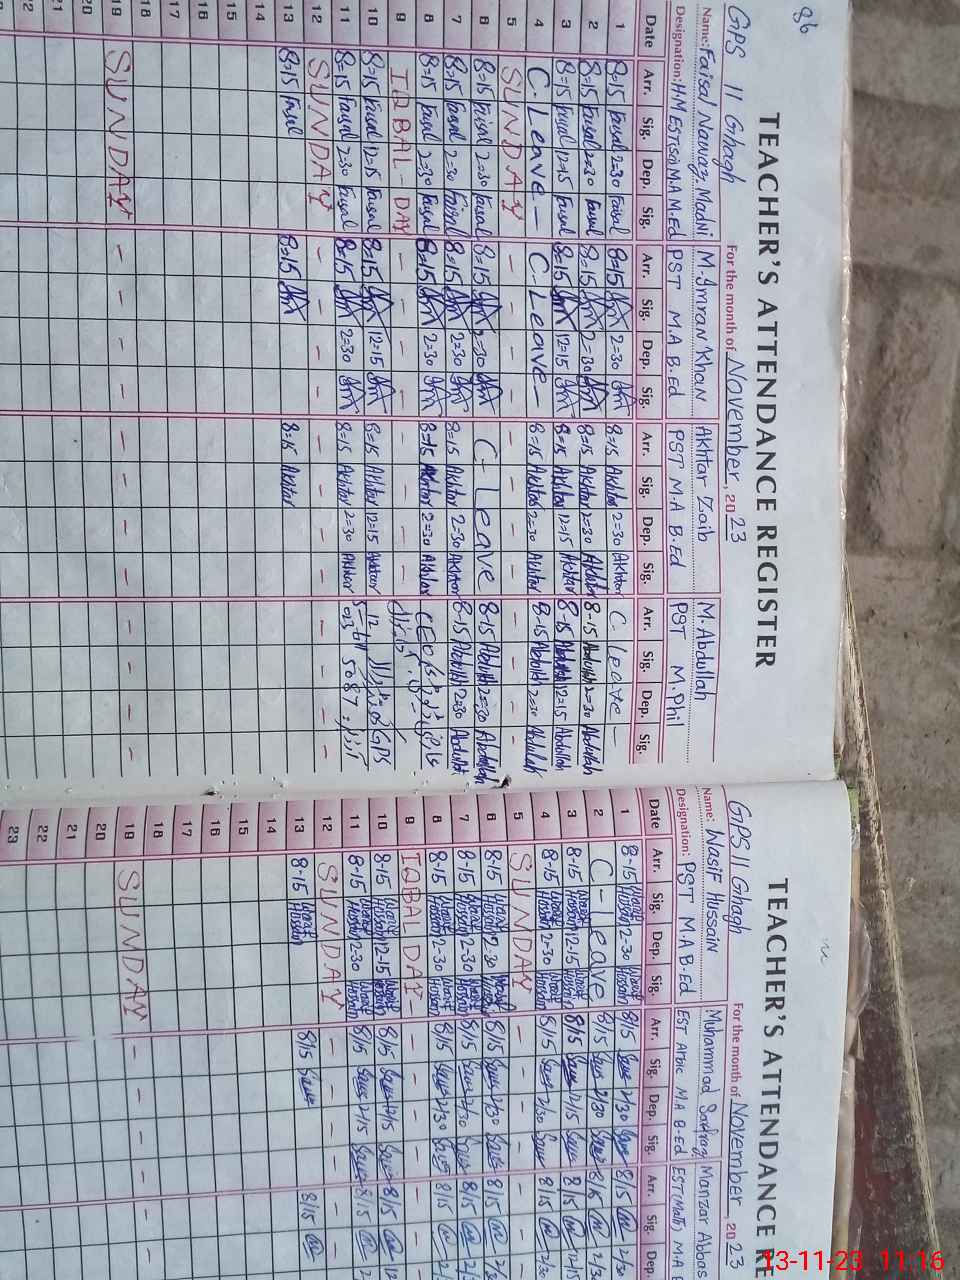 86
TEACHER'S ATTENDANCE REGISTER
GPS 11 Ghagh For the month of November, 2023
Name: Faisal Nawaz Madni M. Imran Khan Akhtar Zaib M. Abdullah
Designation: H.M EST(Sci) M.A M.Ed PST M.A B.Ed PST M.A B.Ed PST M.Phil
Date Arr. Sig. Dep. Sig. Arr. Sig. Dep. Sig. Arr. Sig. Dep. Sig. Arr. Sig. Dep. Sig.
1 8=15 Faisal 2=30 Faisal 8=15 2=30 8=15 Akhtar 2=30 Akhtar C. Leave -
2 8=15 Faisal 2=30 Faisal 8=15 2=30 8=15 Akhtar 2=30 Akhtar 8-15 Abdullah 2=30 Abdullah
3 8=15 Faisal 12=15 Faisal 8=15 12=15 8=15 Akhtar 12=15 Akhtar 8-15 Abdullah 12=15 Abdullah
4 C. Leave - C. Leave - 8=15 Akhtar 2=30 Akhtar 8-15 Abdullah 2=30 Abdullah
5 SUNDAY - - - - - - - - - - - -
6 8=15 Faisal 2=30 Faisal 8=15 2=30 C-Leave 8-15 Abdullah 2=30 Abdullah
7 8=15 Faisal 2=30 Faisal 8=15 2=30 8=15 Akhtar 2=30 Akhtar 8-15 Abdullah 2=30 Abdullah
8 8=15 Faisal 2=30 Faisal 8=15 2=30 8=15 Akhtar 2=30 Akhtar CEO
9 IQBAL-DAY - - - - - - - -
10 8=15 Faisal 12=15 Faisal 8=15 12=15 8=15 Akhtar 12=15 Akhtar GPS
11 8=15 Faisal 2=30 Faisal 8=15 2=30 8=15 Akhtar 2=30 Akhtar 5087
12 SUNDAY - - - - - - - - - - - -
13 8=15 Faisal 8=15 8=15 Akhtar
14
15
16
17
18
19 SUNDAY - - - - - - - - - - - -
20
21
22
TEACHER'S ATTENDANCE RE
GPS 11 Ghagh For the month of November, 2023
Name: Wasif Hussain Muhammad Sarfraz Manzar Abbas
Designation: PST M.A B.Ed EST Arbic M.A B.Ed EST(Math) M.A
Date Arr. Sig. Dep. Sig. Arr. Sig. Dep. Sig. Arr. Sig. Dep.
1 8-15 Wasif Hussain 2-30 Wasif Hussain 8/15 2/30 8/15 2/30
2 C-Leave 8/15 2/30 8/15 2/3
3 8-15 Wasif Hussain 12-15 Wasif Hussain 8/15 12/15 8/15 12-15
4 8-15 Wasif Hussain 2-30 Wasif Hussain 8/15 2/30 8/15 2/30
5 SUNDAY - - - - - - -
6 8-15 Wasif Hussain 2-30 Wasif Hussain 8/15 2/30 8/15 2/30
7 8-15 Wasif Hussain 2-30 Wasif Hussain 8/15 2/30 8/15 2/3
8 8-15 Wasif Hussain 2-30 Wasif Hussain 8/15 2/30 8/15 2/3
9 IQBAL DAY - - - - - - -
10 8-15 Wasif Hussain 12-15 Wasif Hussain 8/15 12/15 8/15 12
11 8-15 Wasif Hussain 2-30 Wasif Hussain 8/15 2/15 8/15 2
12 SUNDAY - - - - - - -
13 8-15 Wasif Hussain 8/15 8/15
14
15
16
17
18
19 SUNDAY - - - - - - -
20
21
22
23
13-11-23 11:16